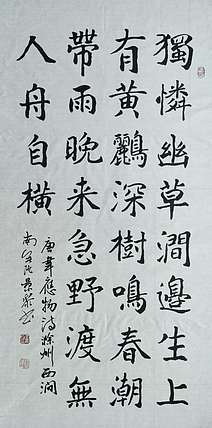 獨憐幽草澗邊生上
有黃鸝深樹鳴春潮
帶雨晚来急野渡無
人舟自橫
唐韋應物詩滁州西澗